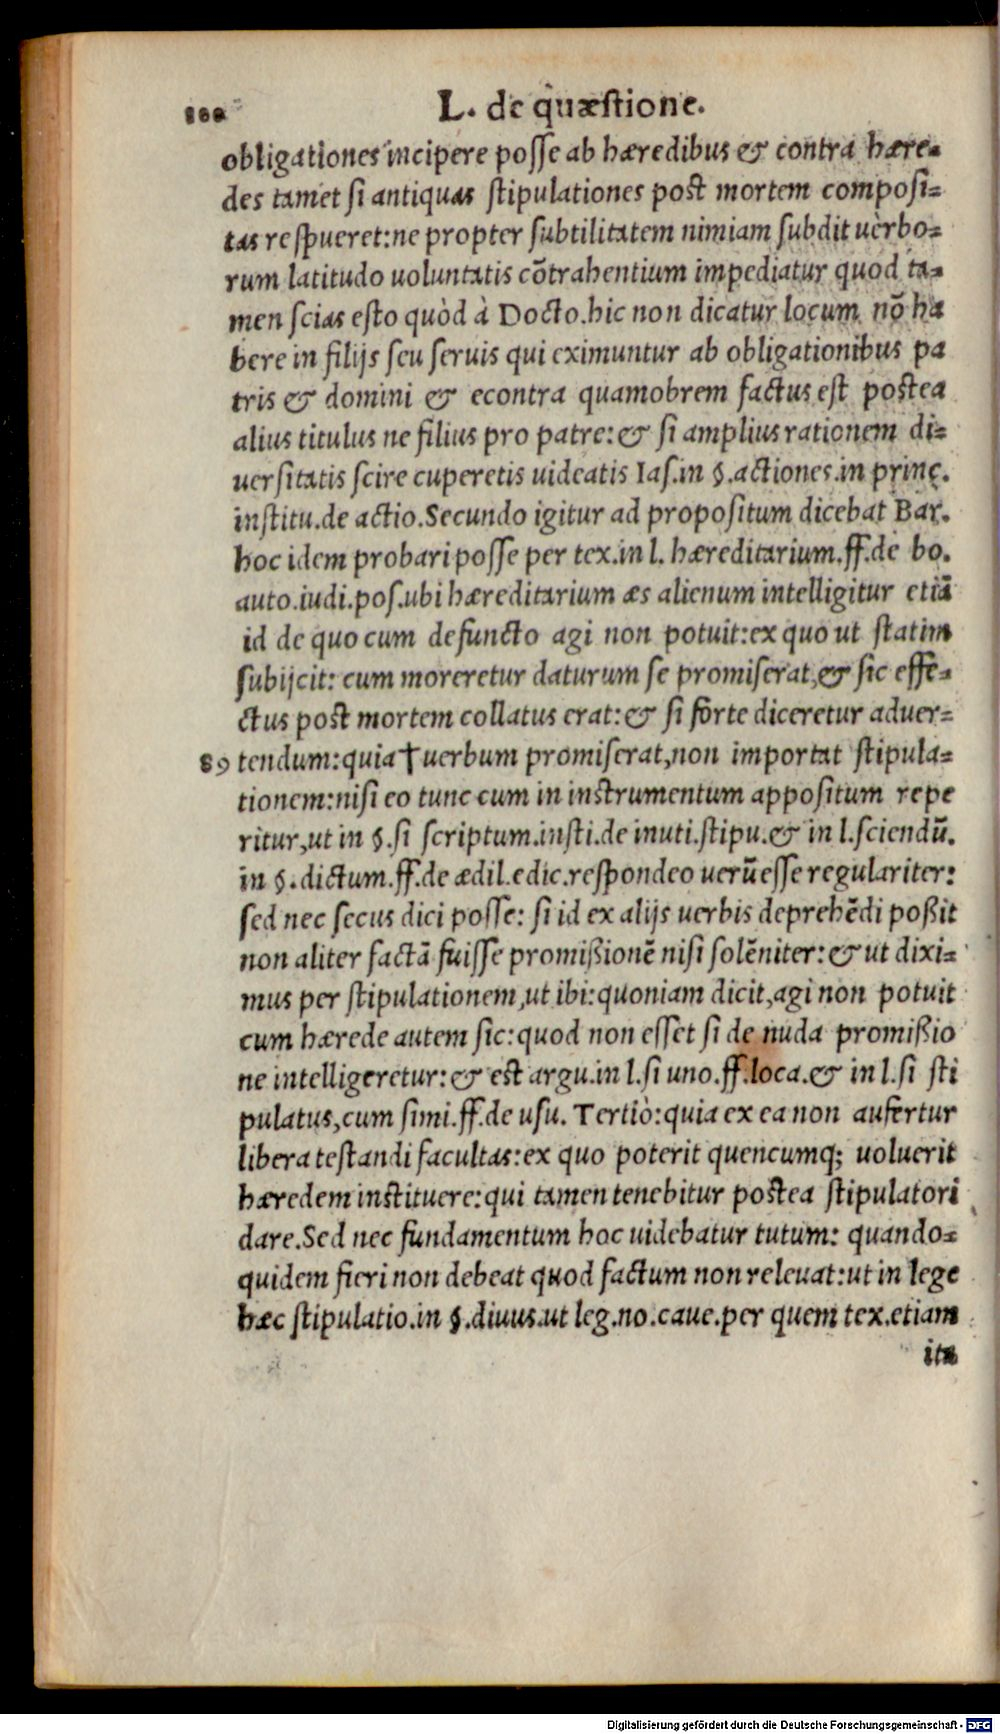 188 L. de quæstione.
obligationes incipere posse ab hæredibus & contra hære-
des tamet si antiquas stipulationes post mortem composi-
tas respueret: ne propter subtilitatem nimiam subdit uerbo-
rum latitudo uoluntatis cōtrahentium impediatur quod ta-
men scias esto quòd à Docto.hic non dicatur locum nō ha
bere in filijs seu seruis qui eximuntur ab obligationibus pa
tris & domini & econtra quamobrem factus est postea
alius titulus ne filius pro patre: & si amplius rationem di-
uersitatis scire cuperetis uideatis Ias.in §.actiones.in princ.
institu.de actio.Secundo igitur ad propositum dicebat Bar.
hoc idem probari posse per tex.in l. hæreditarium.ff.de bo.
auto.iudi.pos.ubi hæreditarium æs alienum intelligitur etiā
id de quo cum defuncto agi non potuit: ex quo ut statim
subijcit: cum moreretur daturum se promiserat, & sic effe-
ctus post mortem collatus erat: & si forte diceretur aduer-
89 tendum: quia † uerbum promiserat, non importat stipula-
tionem: nisi eo tunc cum in instrumentum appositum repe
ritur, ut in §.si scriptum.insti.de inuti.stipu.& in l.sciendū.
in §.dictum.ff.de ædil.edic.respondeo uerū esse regulariter:
sed nec secus dici posse: si id ex alijs uerbis deprehēdi poßit
non aliter factā fuisse promißionē nisi solēniter: & ut dixi-
mus per stipulationem, ut ibi: quoniam dicit, agi non potuit
cum hærede autem sic: quod non esset si de nuda promißio
ne intelligeretur: & est argu.in l.si uno.ff.loca.& in l.si sti
pulatus, cum simi.ff.de usu. Tertiò: quia ex ea non aufertur
libera testandi facultas: ex quo poterit quencumq; uoluerit
hæredem instituere: qui tamen tenebitur postea stipulatori
dare.Sed nec fundamentum hoc uidebatur tutum: quando-
quidem fieri non debeat quod factum non releuat: ut in lege
hæc stipulatio.in §.diuus.ut leg.no.caue.per quem tex.etiam
ita
Digitalisierung gefördert durch die Deutsche Forschungsgemeinschaft - DFG